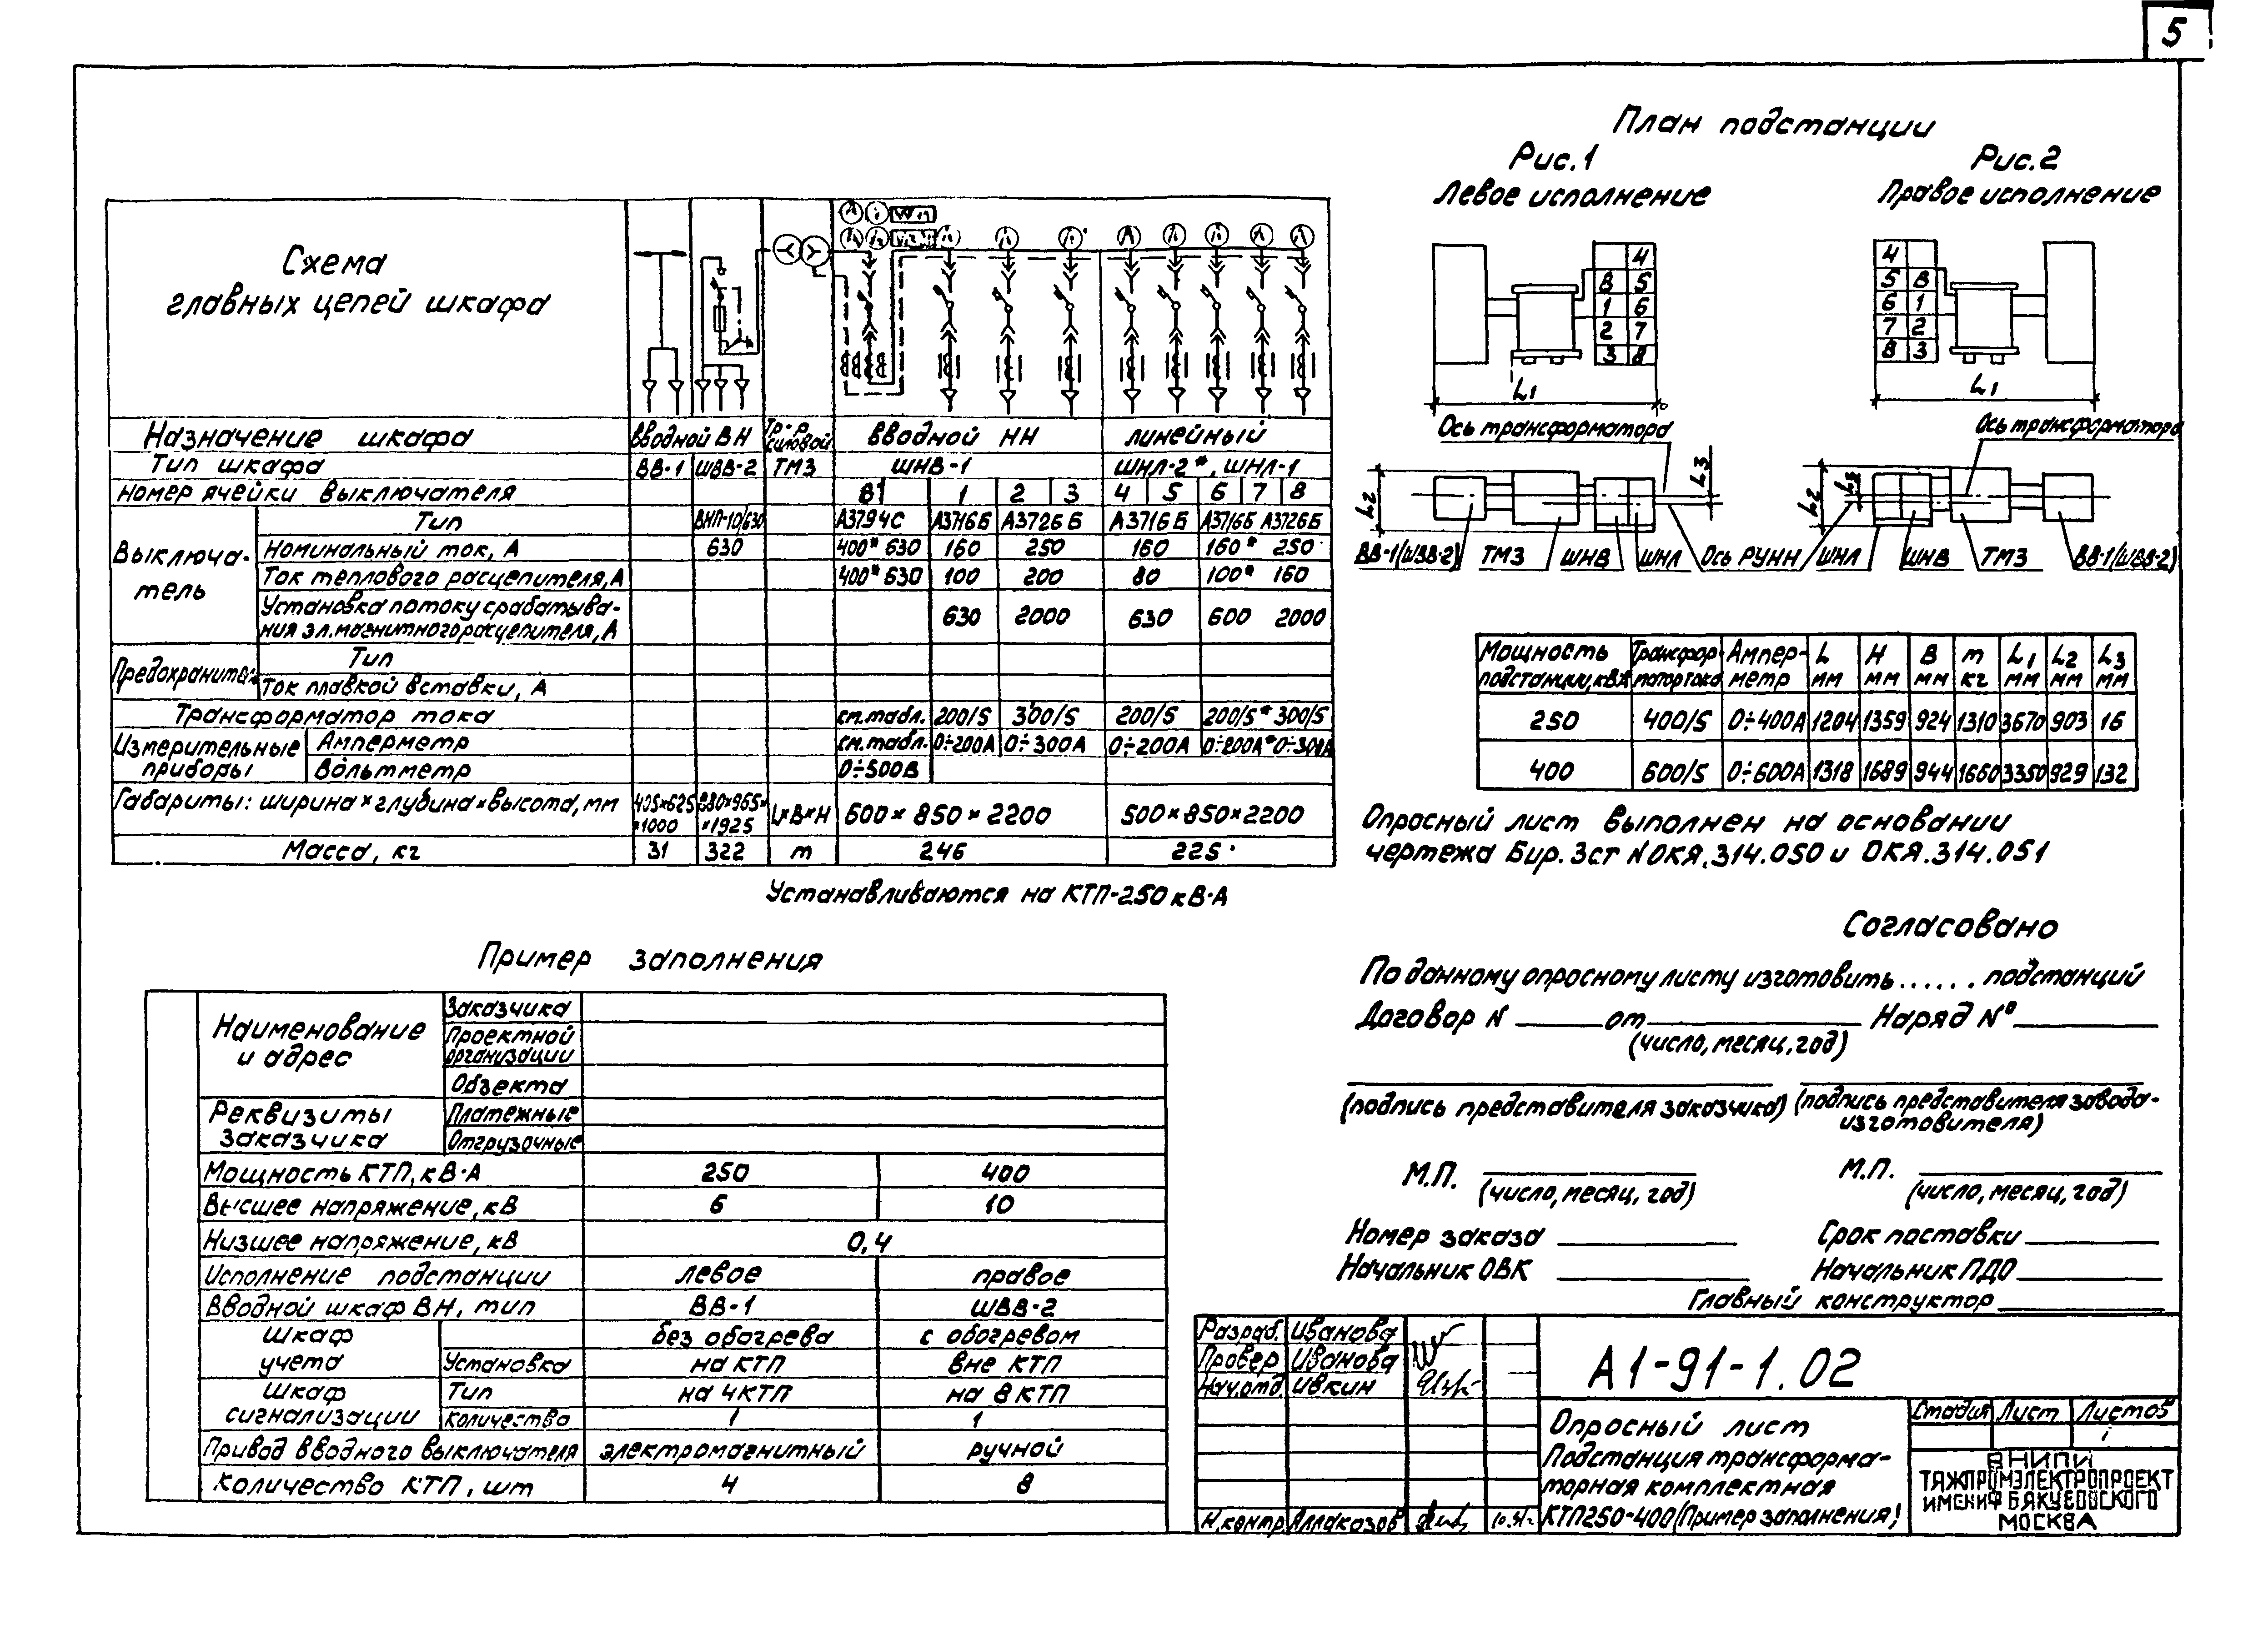 5
План подстанции
Рис.1
Левое исполнение
Рис.2
Правое исполнение
Схема
главных цепей шкафа
Назначение шкафа Вводной ВН Тр-р силовой Вводной НН Линейный
Тип шкафа ВВ-1 ШВВ-2 ТМЗ ШНВ-1 ШНЛ-2*, ШНЛ-1
Номер ячейки выключателя В 1 2 3 4 5 6 7 8
Выключатель
Тип ВНП-10/630 А3794С А3716Б А3726Б А3716Б А3716Б А3726Б
Номинальный ток, А 630 400* 630 160 250 160 160* 250
Ток теплового расцепителя, А 400* 630 100 200 80 100* 160
Установка по току срабатыва-
ния эл.магнитного расцепителя, А 630 2000 630 600 2000
Предохранитель
Тип
Ток плавкой вставки, А
Трансформатор тока см.табл. 200/5 300/5 200/5 200/5* 300/5
Измерительные приборы
Амперметр см.табл. 0÷200А 0÷300А 0÷200А 0÷200А* 0÷300А
Вольтметр 0÷500В
Габариты: ширина×глубина×высота, мм 405×625×1000 880×965××1925 L×B×H 600×850×2200 500×850×2200
Масса, кг 31 322 m 246 225
Устанавливаются на КТП-250 кВ·А
4
В 5
1 6
2 7
3 8
L1
4
5 В
6 1
7 2
8 3
L1
Ось трансформатора
Ось трансформатора
L2
L3
L2
L3
ВВ-1(ШВВ-2) ТМЗ ШНВ ШНЛ Ось РУНН ШНЛ ШНВ ТМЗ ВВ-1(ШВВ-2)
Мощность подстанции, кВА Трансформатор тока Амперметр L мм H мм В мм m кг L1 мм L2 мм L3 мм
250 400/5 0÷400А 1204 1359 924 1310 3670 903 16
400 600/5 0÷600А 1318 1689 944 1660 3350 929 132
Опросный лист выполнен на основании
чертежа Бир. Зст N ОКЯ.314.050 и ОКЯ.314.051
Согласовано
По данному опросному листу изготовить ...... подстанций
Договор N от Наряд Nº
(число, месяц, год)
(подпись представителя заказчика) (подпись представителя завода-
изготовителя)
М.П. М.П.
(число, месяц, год) (число, месяц, год)
Номер заказа Срок поставки
Начальник ОВК Начальник ПДО
Главный конструктор
Пример заполнения
Наименование
и адрес
Заказчика
Проектной
организации
Объекта
Реквизиты
заказчика
Платежные
Отгрузочные
Мощность КТП, кВ·А 250 400
Высшее напряжение, кВ 6 10
Низшее напряжение, кВ 0,4
Исполнение подстанции левое правое
Вводной шкаф ВН, тип ВВ-1 ШВВ-2
Шкаф
учета
без обогрева с обогревом
Установка на КТП вне КТП
Шкаф
сигнализации
Тип на 4КТП на 8 КТП
Количество 1 1
Привод вводного выключателя электромагнитный ручной
Количество КТП, шт 4 8
Разраб. Иванова
Провер Иванова
Нач.отд. Ивкин
Н.контр. Аллаkозов
А1-91-1.02
Опросный лист
Подстанция трансформа-
торная комплектная
КТП250-400 (Пример заполнения)
Стадия Лист Листов
1
ВНИПИ
ТЯЖПРОМЭЛЕКТРОПРОЕКТ
ИМЕНИ Ф.Б.ЯКУБОВСКОГО
МОСКВА